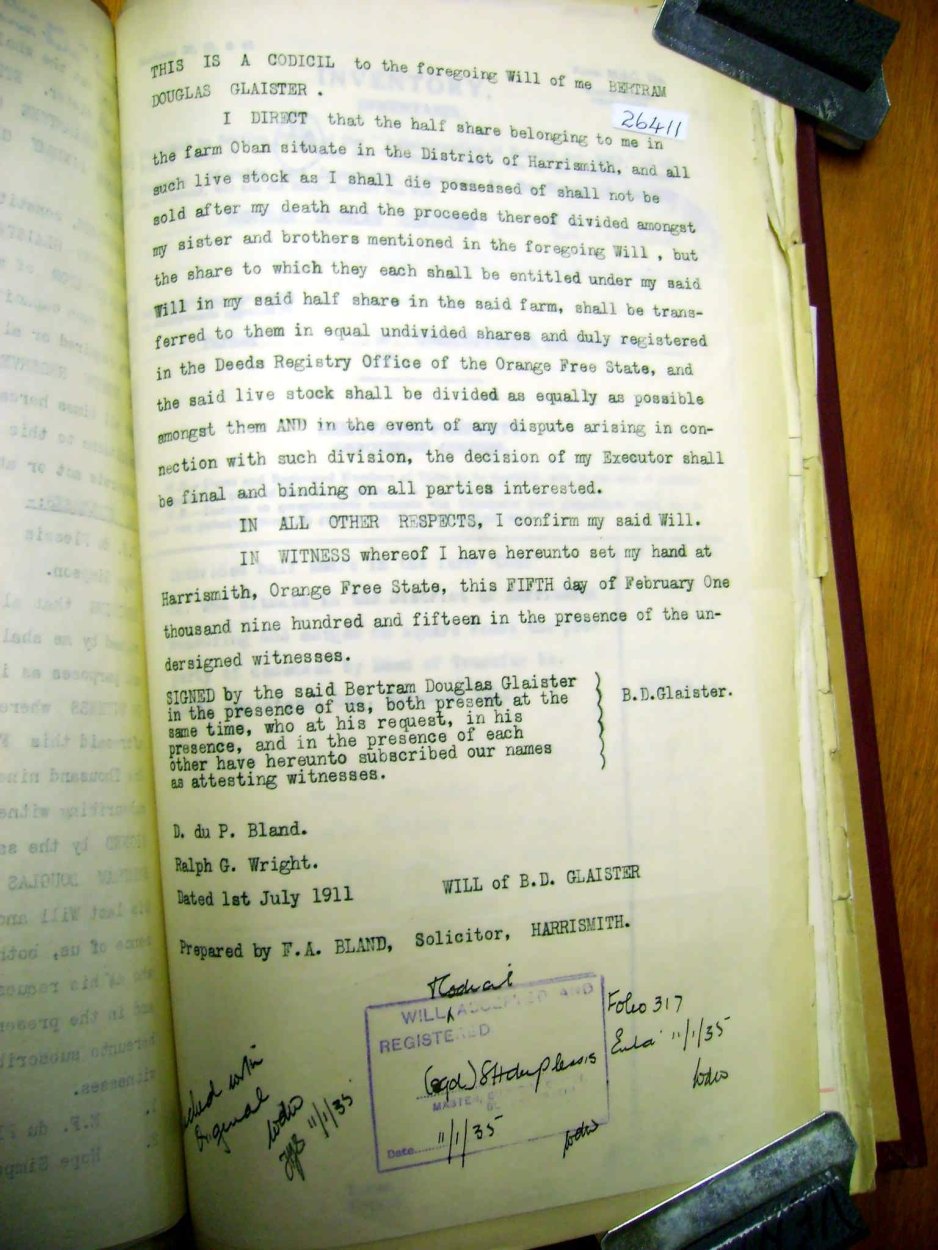 THIS IS A CODICIL to the foregoing Will of me BERTRAM
DOUGLAS GLAISTER .
26411
I DIRECT that the half share belonging to me in
the farm Oban situate in the District of Harrismith, and all
such live stock as I shall die possessed of shall not be
sold after my death and the proceeds thereof divided amongst
my sister and brothers mentioned in the foregoing Will , but
the share to which they each shall be entitled under my said
Will in my said half share in the said farm, shall be trans-
ferred to them in equal undivided shares and duly registered
in the Deeds Registry Office of the Orange Free State, and
the said live stock shall be divided as equally as possible
amongst them AND in the event of any dispute arising in con-
nection with such division, the decision of my Executor shall
be final and binding on all parties interested.
IN ALL OTHER RESPECTS, I confirm my said Will.
IN WITNESS whereof I have hereunto set my hand at
Harrismith, Orange Free State, this FIFTH day of February One
thousand nine hundred and fifteen in the presence of the un-
dersigned witnesses.
SIGNED by the said Bertram Douglas Glaister
in the presence of us, both present at the
same time, who at his request, in his
presence, and in the presence of each
other have hereunto subscribed our names
as attesting witnesses.
B.D.Glaister.
D. du P. Bland.
Ralph G. Wright.
Dated 1st July 1911
WILL of B.D. GLAISTER
Prepared by F.A. BLAND, Solicitor, HARRISMITH.
Kodicil
WILL ACCEPTED AND
REGISTERED
(sgd) S H du Plessis
MASTER
Date 11/1/35
Folio 317
11/1/35
with
Original
11/1/35